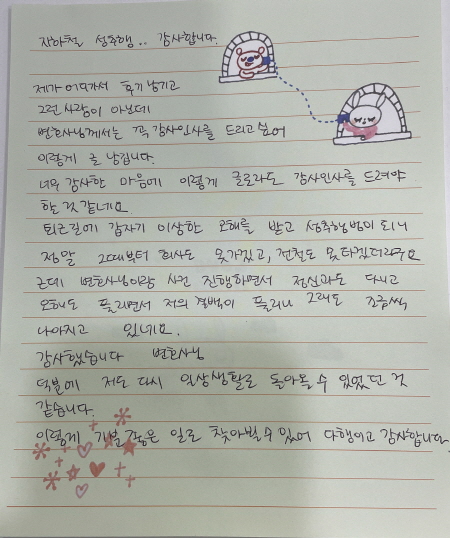 지하철 성추행.. 감사합니다.
제가 어디가서 후기 남기고
그런 사람이 아닌데
변호사님께서는 꼭 감사인사를 드리고 싶어
이렇게 글 남깁니다.
너무 감사한 마음에 이렇게 글로라도 감사인사를 드려야
한 것 같네요
퇴근길에 갑자기 이상한 오해를 받고 성추행범이 되니
정말 그때부터 회사도 못가겠고, 전철도 못타겠더라구요
근데 변호사님이랑 사건 진행하면서 정신과도 다니고
오해도 풀리면서 저의 결백이 풀리니 그래도 조금씩
나아지고 있네요.
감사했습니다 변호사님
덕분에 저도 다시 일상생활로 돌아올 수 있었던 것
같습니다.
이렇게 기분좋은 일로 찾아뵐 수 있어 다행이고 감사합니다.